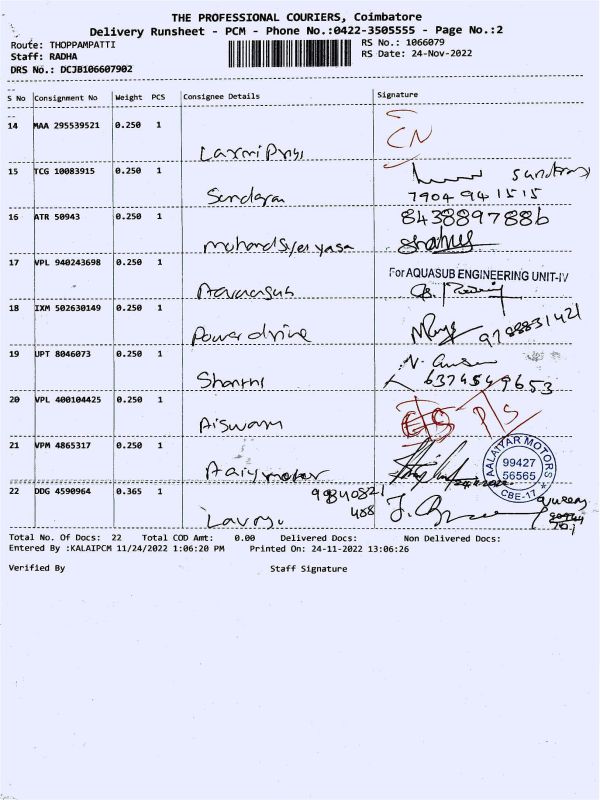 THE PROFESSIONAL COURIERS, Coimbatore
Delivery Runsheet - PCM - Phone No.:0422-3505555 - Page No.:2
Route: THOPPAMPATTI RS No.: 1066079
Staff: RADHA RS Date: 24-Nov-2022
DRS No.: DCJB106607902
S No Consignment No Weight PCS Consignee Details Signature
14 MAA 295539521 0.250 1
CN
15 TCG 10083915 0.250 1
Sundaram
7904 941515
16 ATR 50943 0.250 1 8438897886
17 VPL 940243698 0.250 1 For AQUASUB ENGINEERING UNIT-IV
18 IXM 502630149 0.250 1
Power drive 9788831421
19 UPT 8046073 0.250 1
Shanthi 6374549653
20 VPL 400104425 0.250 1
Aiswarn
21 VPM 4865317 0.250 1 AALAIYAR MOTORS
99427
56565
CBE-17
22 DDG 4590964 0.365 1
Total No. Of Docs: 22 Total COD Amt: 0.00 Delivered Docs: Non Delivered Docs:
Entered By :KALAIPCM 11/24/2022 1:06:20 PM Printed On: 24-11-2022 13:06:26
Verified By Staff Signature